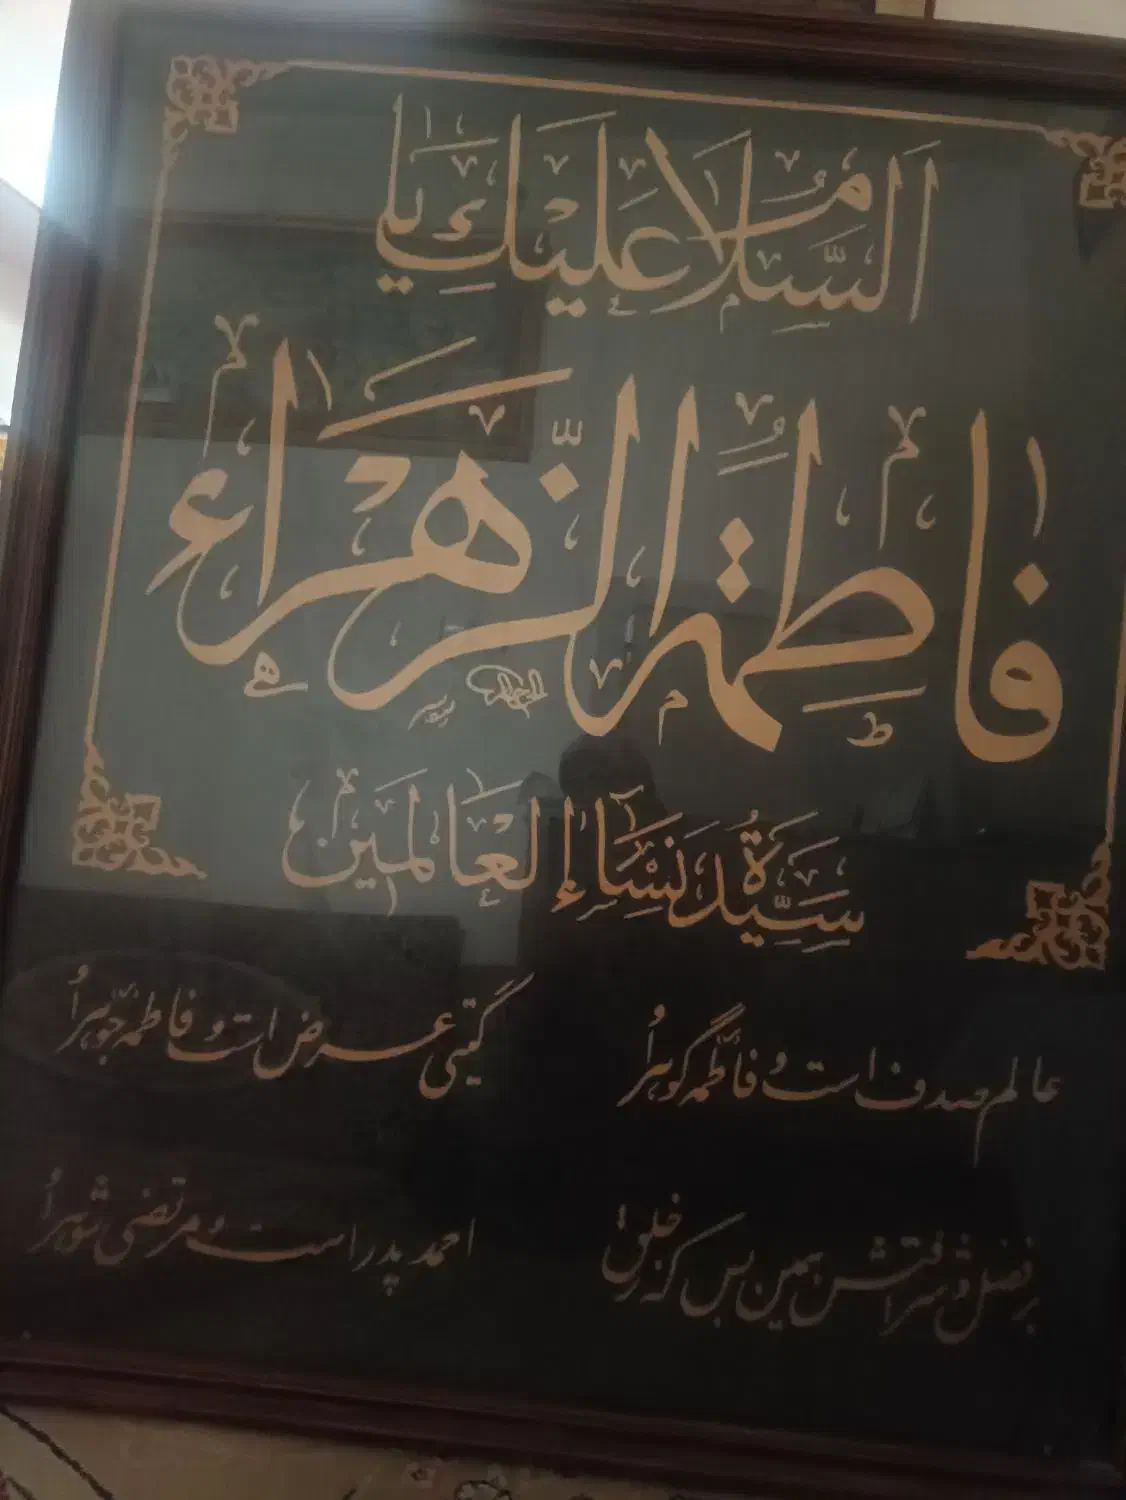 السَّلامُ عَلَيْكِ يا
فاطِمَةُ الزَّهْراءُ
سَيِّدَةَ نِساءِ الْعالَمينَ
عالم صدف است و فاطمه گوهر اُ
گیتی عرض است و فاطمه جوهر اُ
بر فضل و شرافتش همین بس که ز خلق
احمد پدر است و مرتضی شوهر اُ